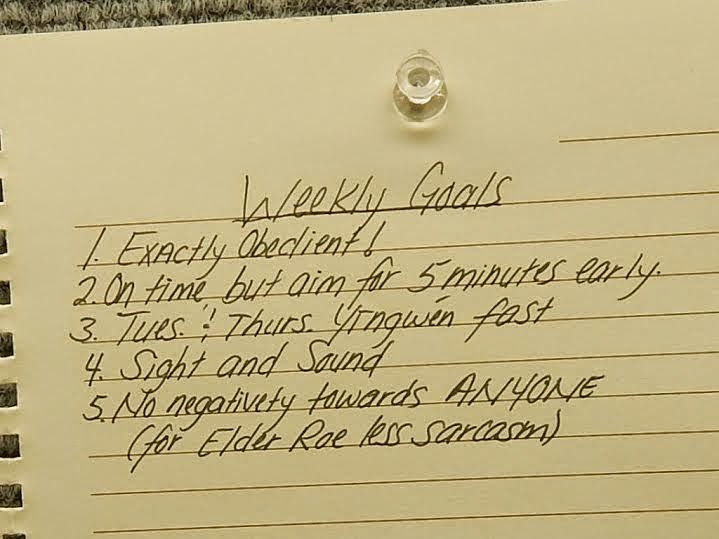 Weekly Goals
1. Exactly Obedient!
2. On time, but aim for 5 minutes early.
3. Tues. & Thurs. Yīngwén fast
4. Sight and Sound
5. No negativety towards ANYONE
(for Elder Roe less sarcasm)